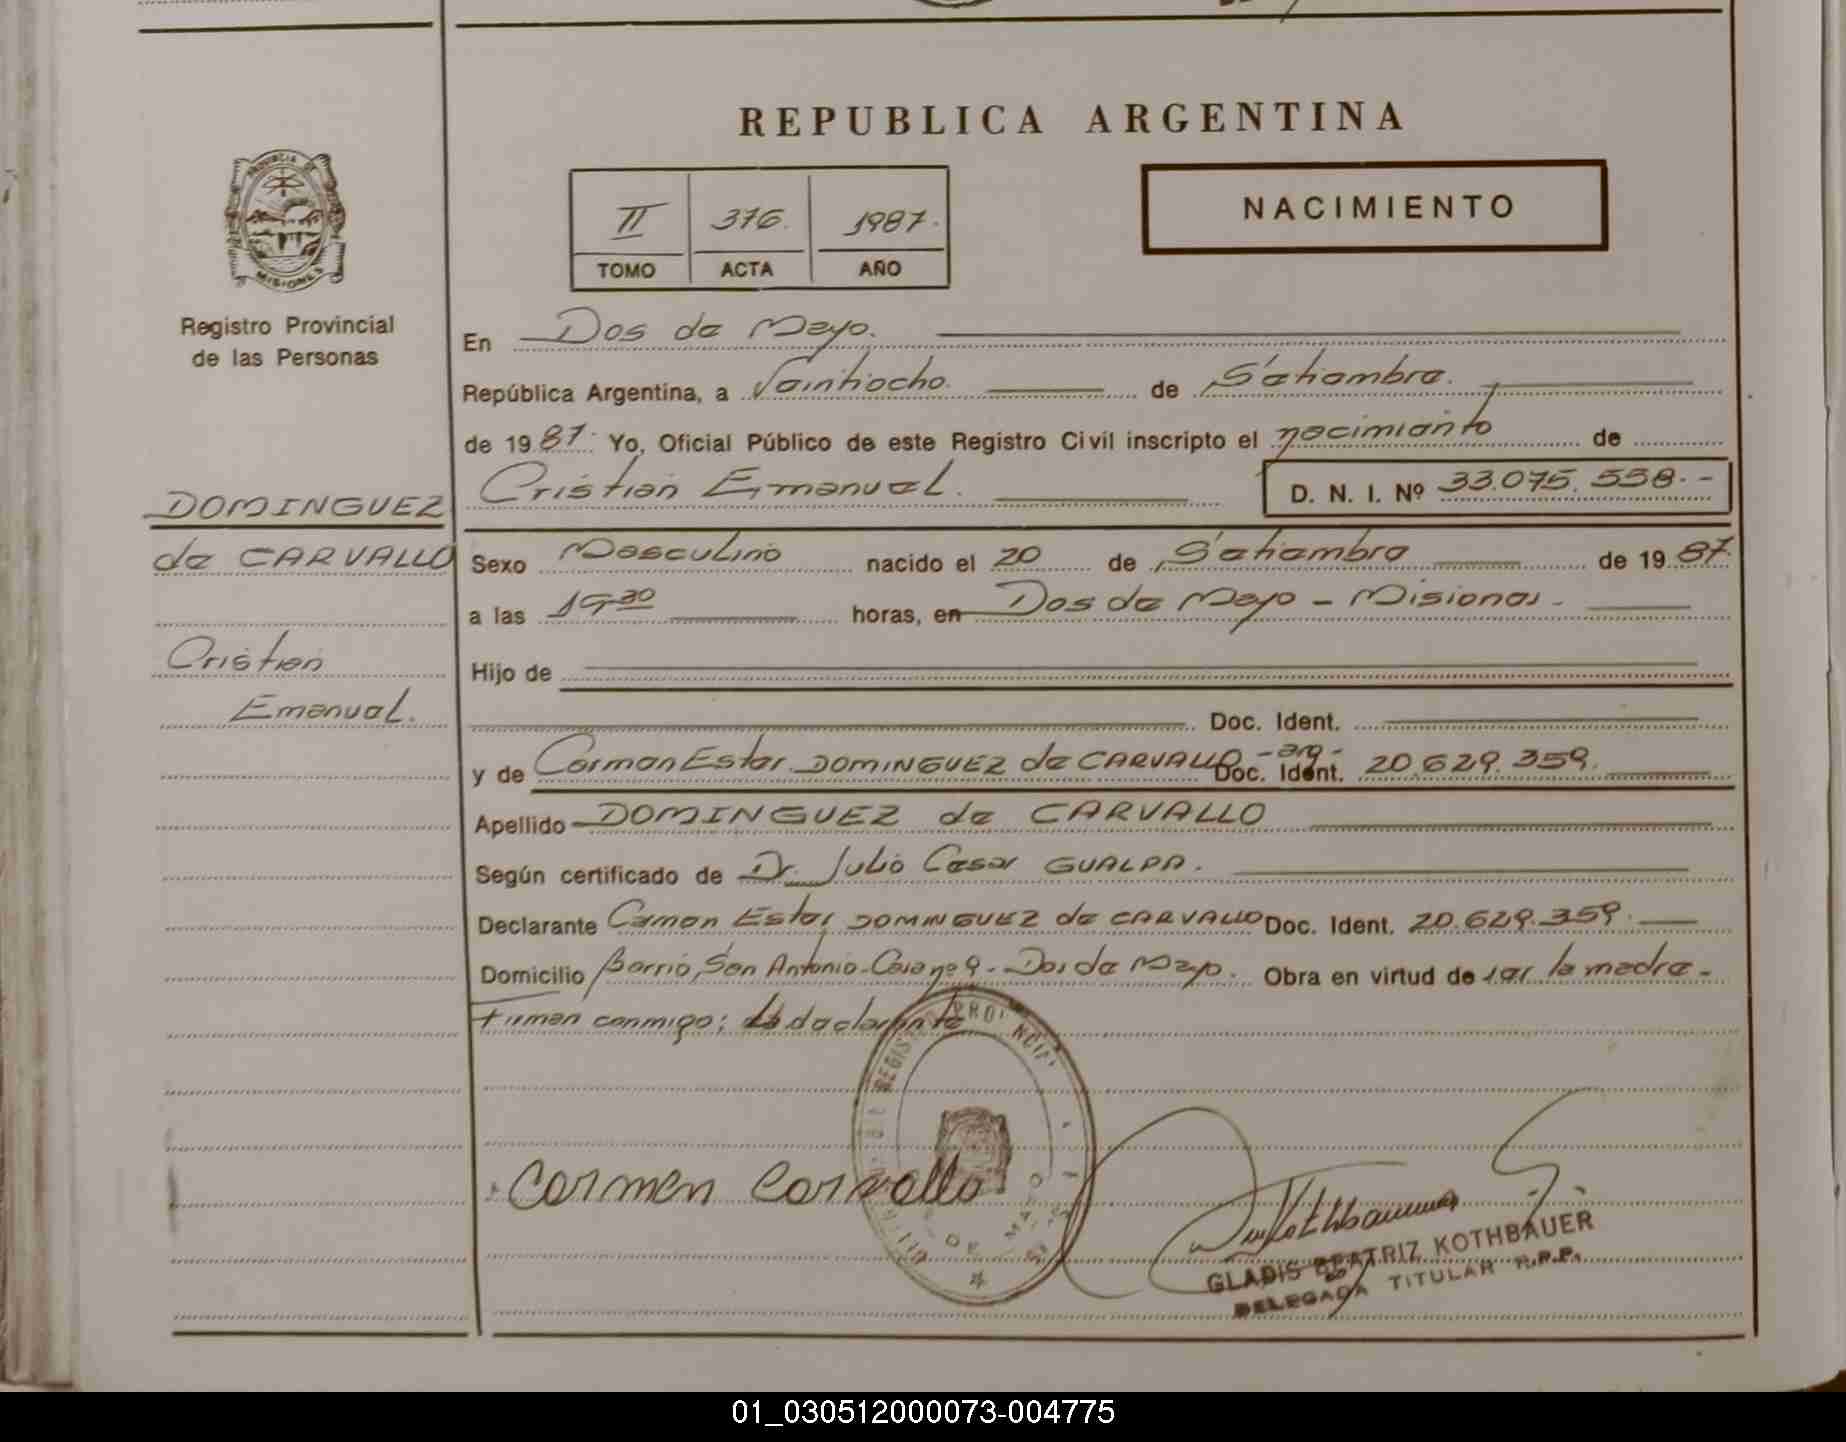 REPUBLICA ARGENTINA
PROVINCIA DE MISIONES
Registro Provincial
de las Personas
II 376. 1987.
TOMO ACTA AÑO
NACIMIENTO
En Dos de Mayo.
República Argentina, a Veintiocho. de Setiembre.
de 1987. Yo, Oficial Público de este Registro Civil inscripto el nacimiento de
Cristian Emanuel. D. N. I. Nº 33.075.558.-
DOMINGUEZ
de CARVALLO
Cristian
Emanuel.
Sexo Masculino nacido el 20 de Setiembre de 1987.
a las 19 30 horas, en Dos de Mayo - Misiones.
Hijo de
Doc. Ident.
y de Carmen Ester DOMINGUEZ de CARVALLO -arg- Doc. Ident. 20.629.359.
Apellido DOMINGUEZ de CARVALLO
Según certificado de Dr. Julio Cesar GUALPA.
Declarante Carmen Ester DOMINGUEZ de CARVALLO Doc. Ident. 20.629.359.
Domicilio Barrio San Antonio-Casa nº 9-Dos de Mayo. Obra en virtud de ser la madre.-
Firman conmigo; la declarante
Carmen Carvallo
Kothbauer
GLADIS BEATRIZ KOTHBAUER
DELEGADA TITULAR R.P.P.
01_030512000073-004775